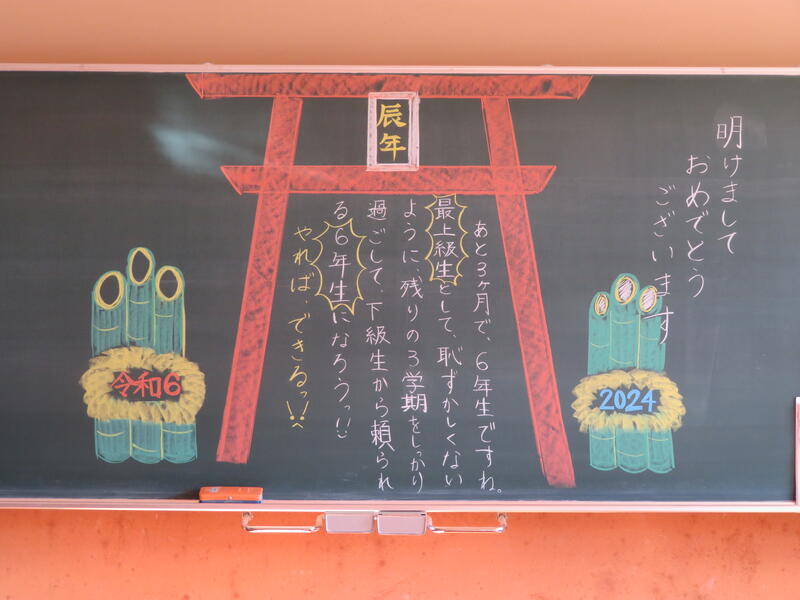 明けまして
おめでとう
ございます
辰年
あと3ヶ月で、6年生ですね。
最上級生として、恥ずかしくない
ように、残りの3学期をしっかり
過ごして、下級生から頼られ
る6年生になろうっ!!
やれば、できるっ!!
令和6
2024